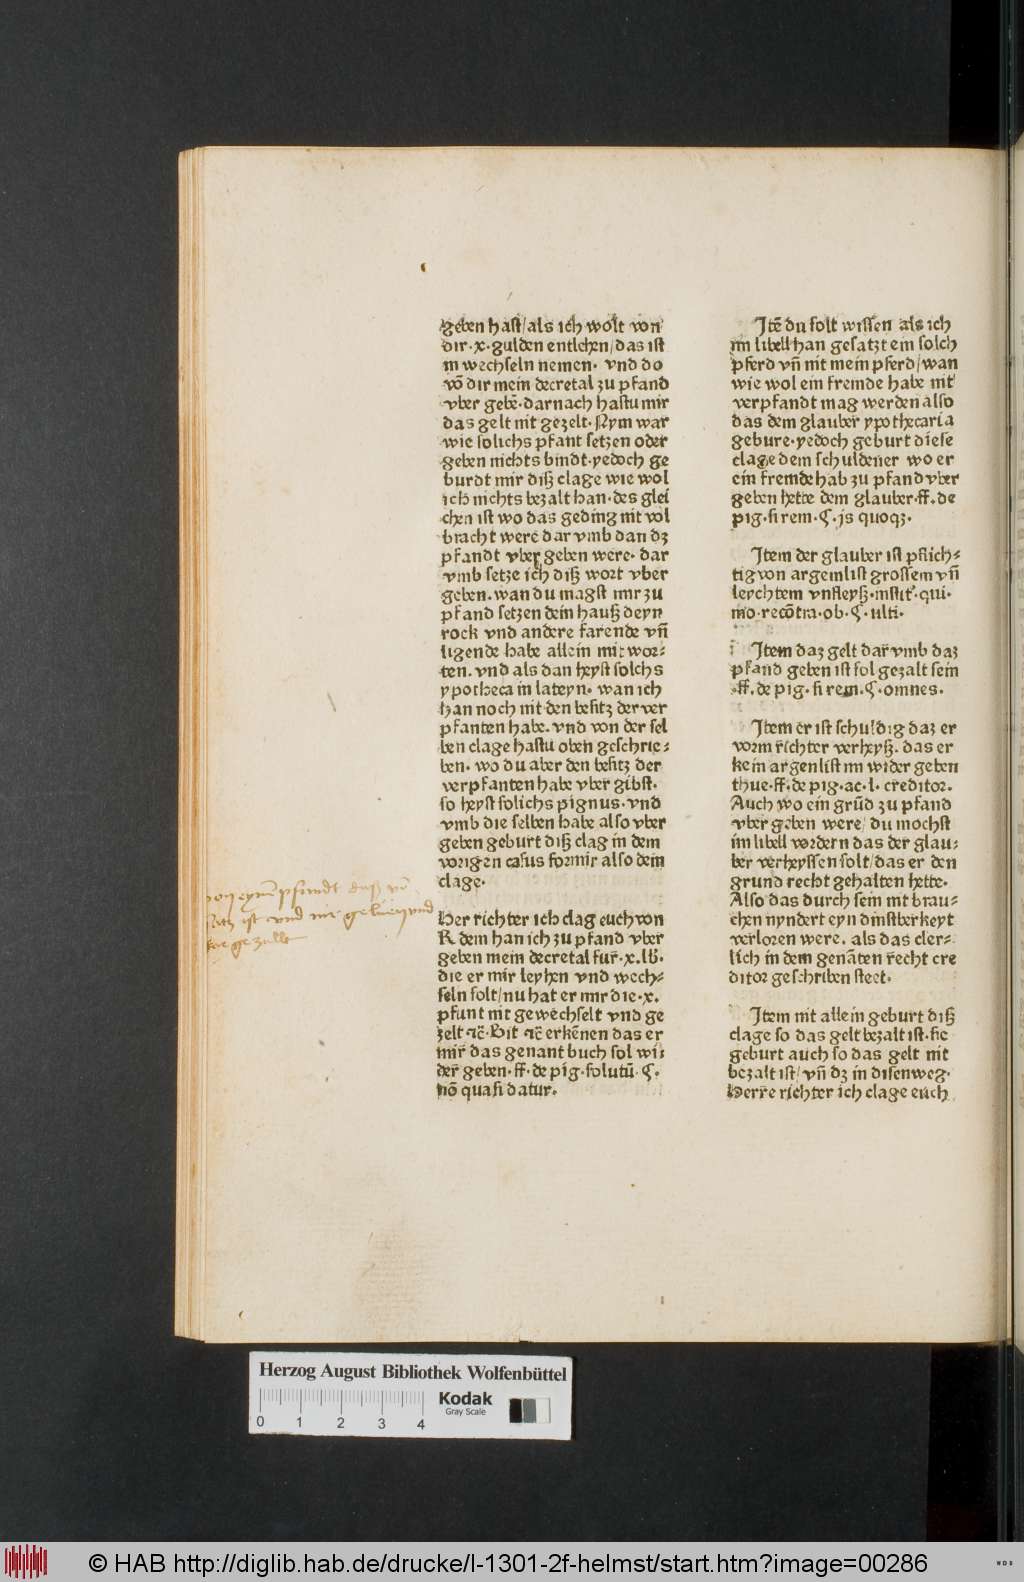 geben hast/als ich wolt von
dir·x·gulden entlehen/das ist
in wechseln nemen· vnd do
võ dir mein decretal zu pfand
vber gebẽ·darnach hastu mir
das gelt nit gezelt·Nym war
wie solichs pfant setzen oder
geben nichts bindt·yedoch ge
burdt mir diß clage wie wol
ich nichts bezalt han·des glei
chen ist wo das geding nit vol
bracht were dar vmb dan dz
pfandt vber geben were· dar
vmb setze ich diß wort vber
geben·wan du magst mir zu
pfand setzen dein hauß deyn
rock vnd andere farende vñ
ligende habe allein mit wor⸗
ten·vnd als dan heyst solchs
ypotheca in lateyn· wan ich
han noch nit den besitz der ver
pfanten habe·vnd von der sel
ben clage hastu oben geschrie⸗
ben· wo du aber den besitz der
verpfanten habe vber gibst·
so heyst solichs pignus·vnd
vmb die selben habe also vber
geben geburt diß clag in dem
vorigen casus formir also dein
clage·
von eynẽ pfandt das võ
satz ist vnd nir geluen vnd
gezallt
Her richter ich clag euch von
R dem han ich zu pfand vber
geben mein decretal fur·x·lb·
die er mir leyhen vnd wech⸗
seln solt/nu hat er mir die·x·
pfunt nit gewechselt vnd ge
zelt ꝛc̃·Bit ꝛc̃ erkẽnen das er
mir das genant buch sol wi⸗
der geben·ff·de pig·solutũ·¶·
nõ quasi datur·
Itẽ du solt wissen als ich
im libell han gesatzt ein solch
pferd vñ nit mein pferd/wan
wie wol ein fremde habe nit
verpfandt mag werden also
das dem glauber ypothecaria
gebure·yedoch geburt diese
clage dem schuldener wo er
ein fremde hab zu pfand vber
geben hette dem glauber·ff·de
pig·si rem·¶·is quoqꝫ·
Item der glauber ist pflich⸗
tig von argemlist grossem vñ
leychtem vnfleyß·instit·qui·
mo·recõtra·ob·¶·ulti·
Item daz gelt dar vmb daz
pfand geben ist sol gezalt sein
·ff·de pig·si rem·¶·omnes·
Item er ist schuldig daz er
vorm richter verheyß·das er
kein argenlist im wider geben
thue·ff·de pig·ac·l·creditor·
Auch wo ein grũd zu pfand
vber geben were/du mochst
im libell vordern das der glau⸗
ber verheyssen solt/das er den
grund recht gehalten hette·
Also das durch sein mit brau⸗
chen nyndert eyn dinstberkeyt
verloren were·als das cler⸗
lich in dem genãten recht cre
ditor geschriben steet·
Item nit allein geburt diß
clage so das gelt bezalt ist·sie
geburt auch so das gelt nit
bezalt ist/vñ dz in disen weg·
Herre richter ich clage euch
Herzog August Bibliothek Wolfenbüttel
0 1 2 3 4
Kodak
Gray Scale
© HAB http://diglib.hab.de/drucke/l-1301-2f-helmst/start.htm?image=00286